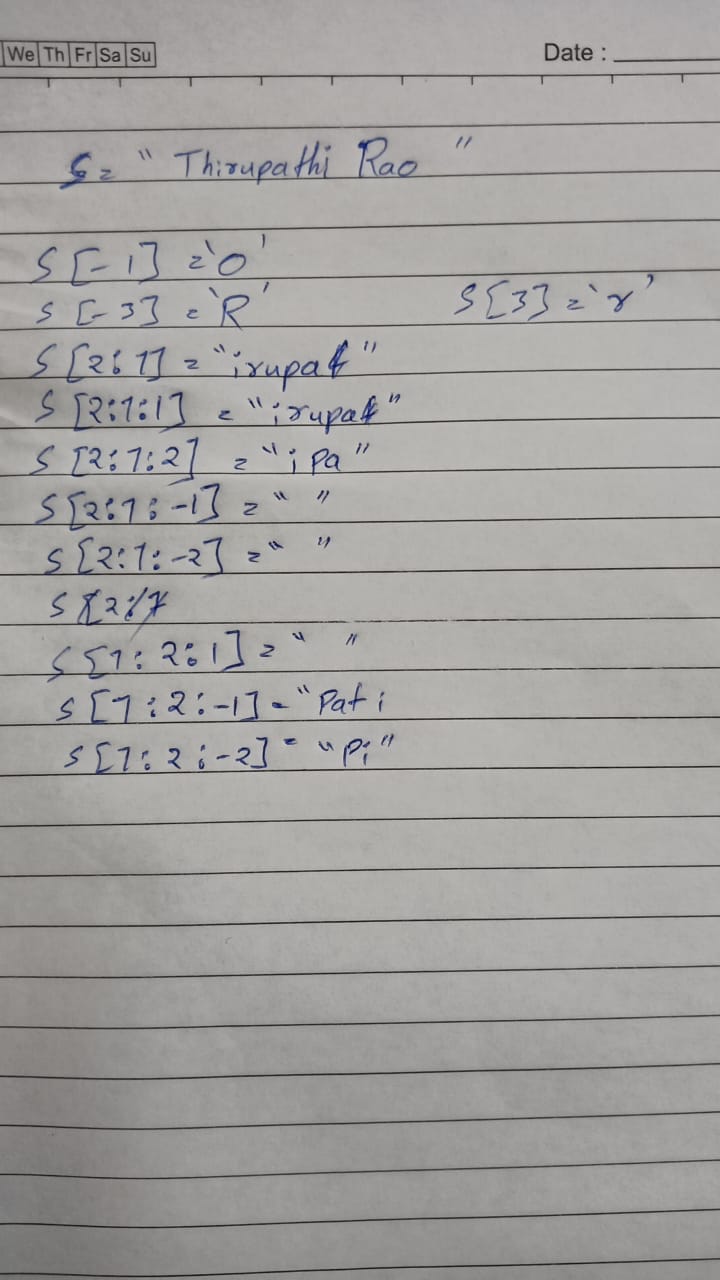 We Th Fr Sa Su Date :
S = " Thirupathi Rao "
S [-1] = 'o'
S [-3] = 'R' S[3] = 'r'
S [2:7] = "irupat"
S [2:7:1] = "irupat"
S [2:7:2] = "ipa"
S [2:7:-1] = " "
S [2:7:-2] = " "
S [2:7
S [7:2:1] = " "
S [7:2:-1] = "Pati
S [7:2:-2] = "Pi"